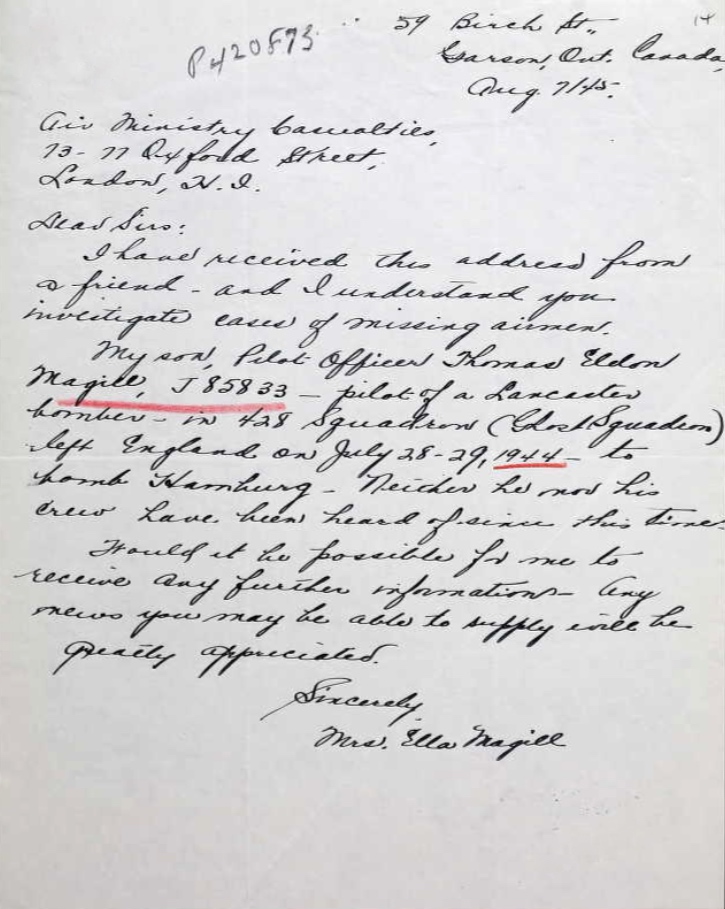 14
P420873
59 Birch St.,
Garson, Ont. Canada,
Aug. 7/45.
Air Ministry Casualties,
73-77 Oxford Street,
London, W.I.
Dear Sirs:
I have received this address from
a friend - and I understand you
investigate cases of missing airmen.
My son, Pilot Officer Thomas Eldon
Magill, J85833 - pilot of a Lancaster
bomber - in 428 Squadron (Ghost Squadron)
left England on July 28-29, 1944 - to
bomb Hamburg - Neither he nor his
crew have been heard of since this time.
Would it be possible for me to
receive any further information - Any
news you may be able to supply will be
greatly appreciated.
Sincerely,
Mrs. Ella Magill